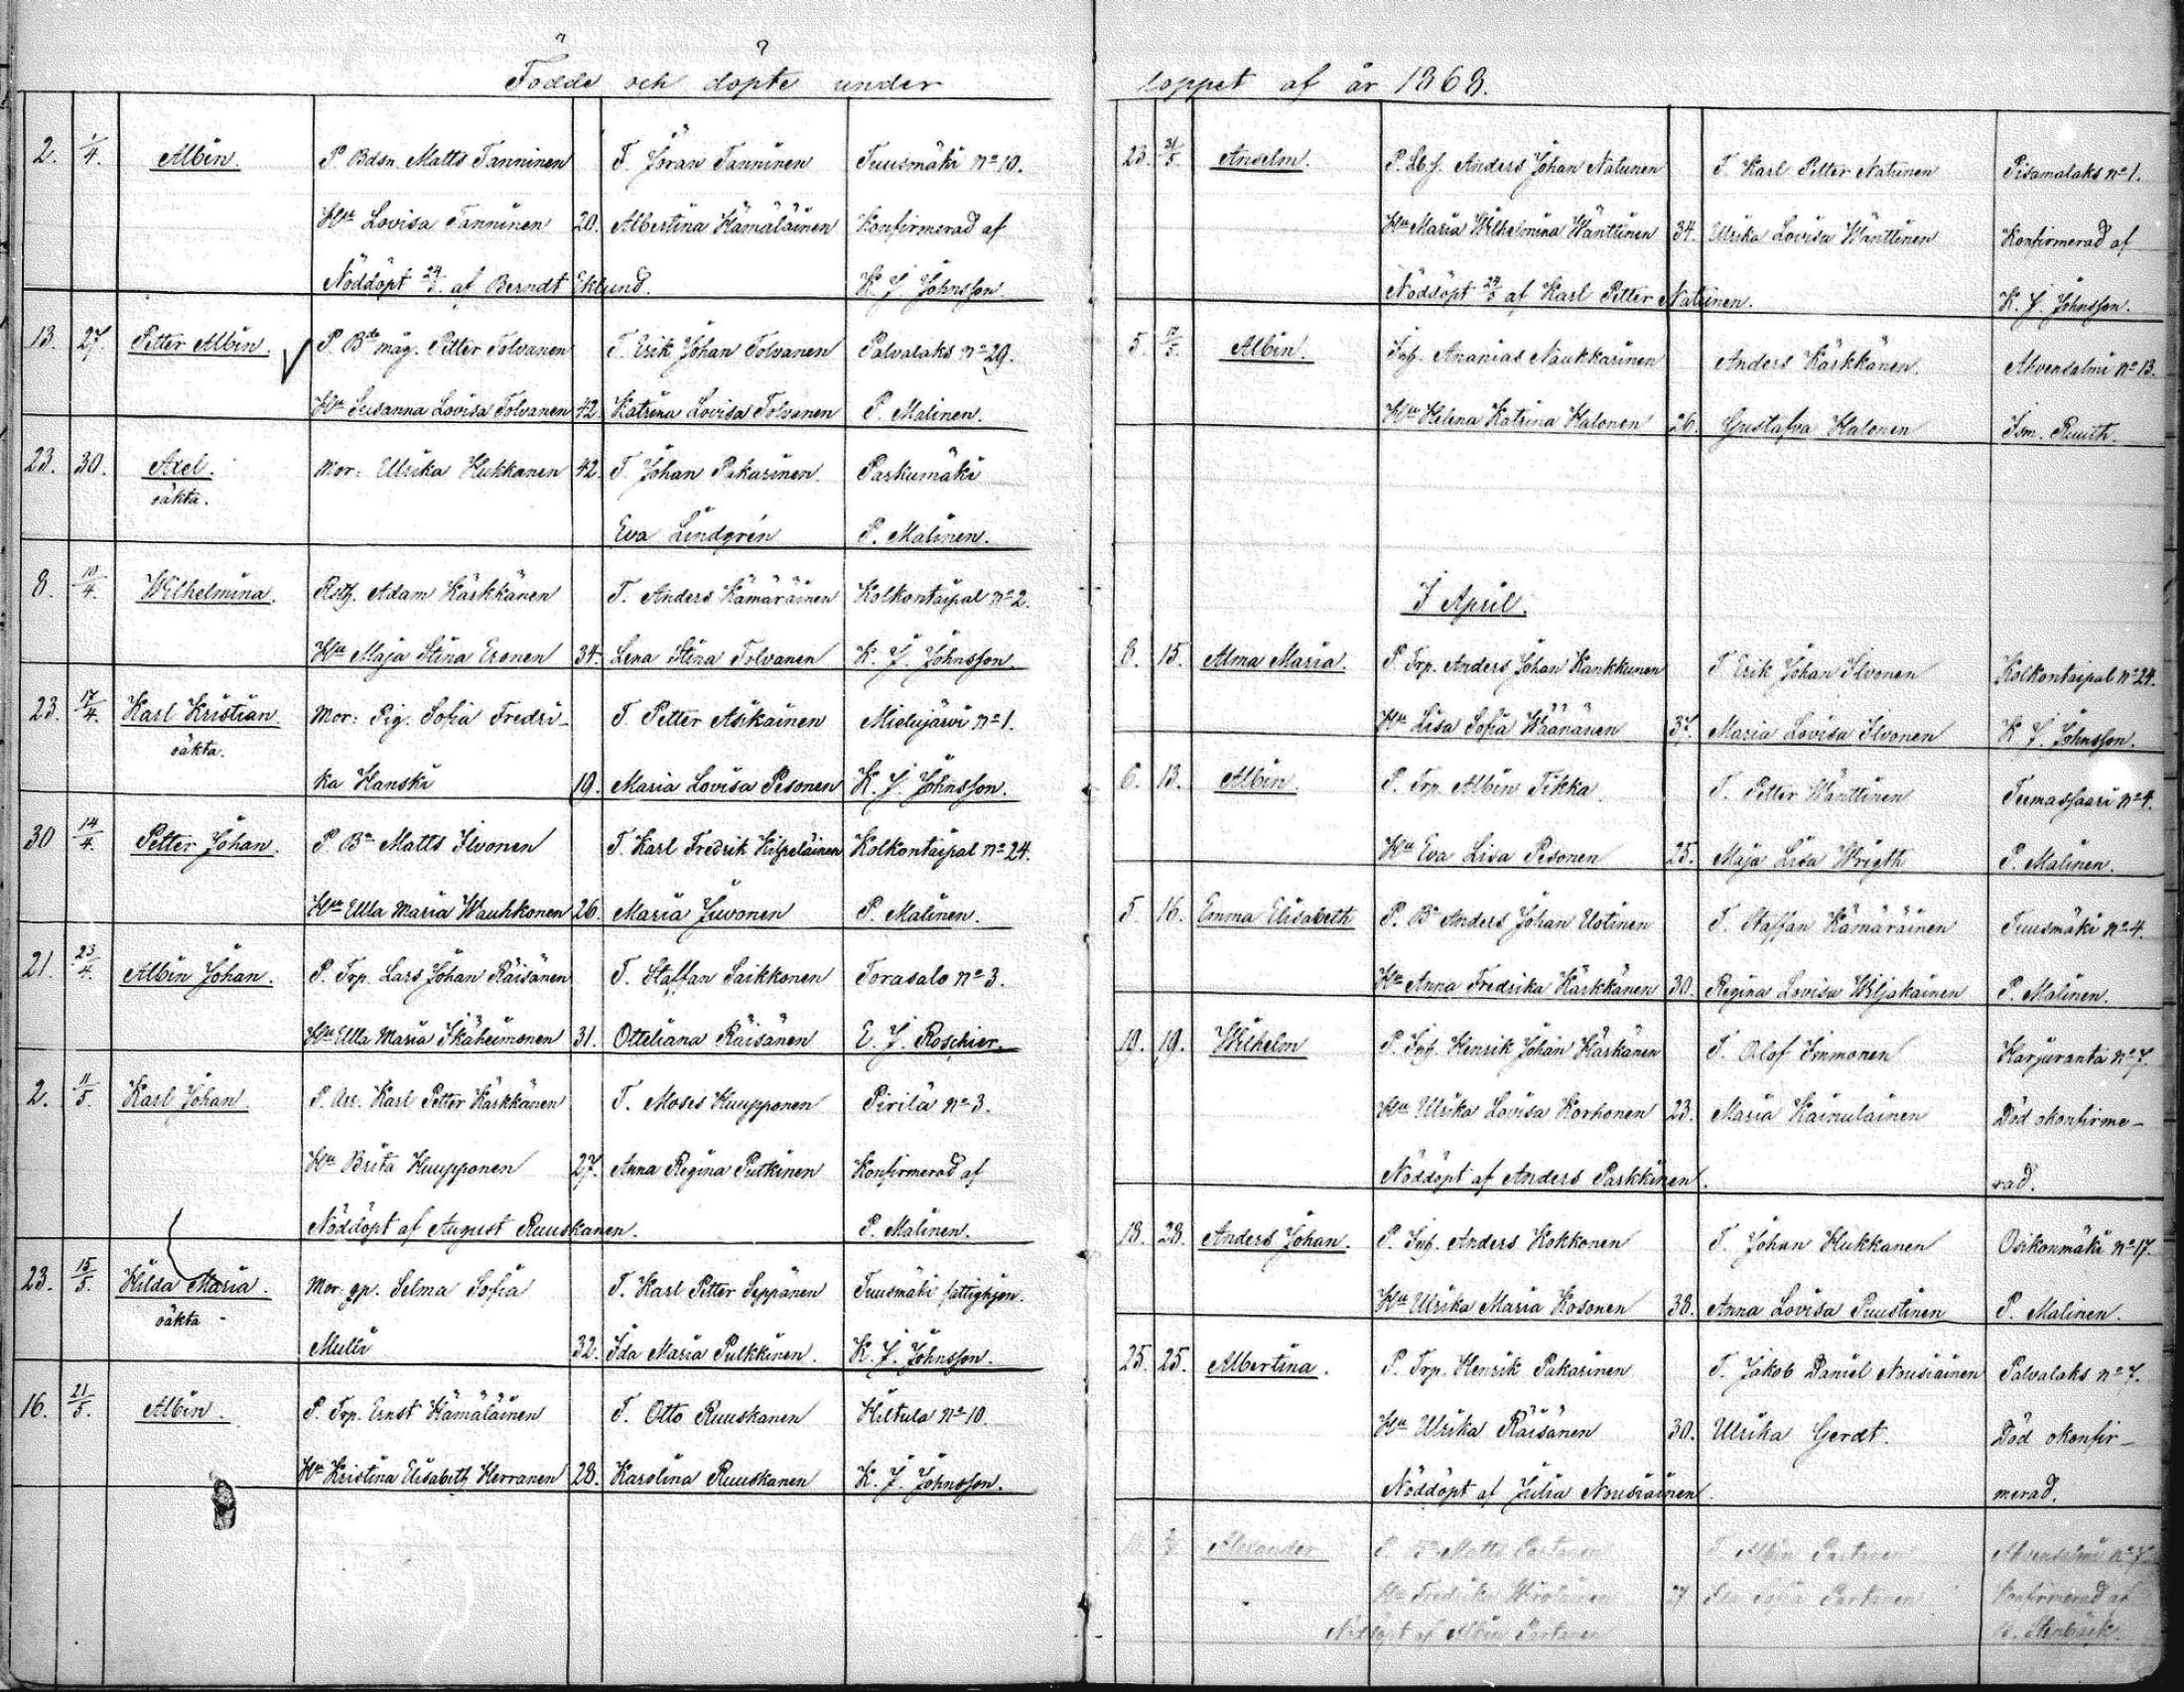 Födde och döpte under
2. 1/4. Albin. P. Bdsn. Matts Tanninen T. Jöran Tanninen Tuusmäki No 10.
Hu Lovisa Tanninen 20. Albertina Hämäläinen Konfirmerad af
Nöddöpt 24/3 af Berndt Eklund. K. J. Johnsson.
13. 27. Petter Albin. P. Bde måg. Petter Tolvanen T. Erik Johan Tolvanen Palvalaks No 29.
Hu Susanna Lovisa Tolvanen 42. Katrina Lovisa Tolvanen P. Malinen.
23. 30. Axel. Mor: Ulrika Hukkanen 42. T. Johan Pakarinen. Paskumäki
oäkta.
Eva Lindgrén P. Malinen.
8. 10/4. Wilhelmina. Adam Kärkkänen T. Anders Kämäräinen Kolkontaipal No 2.
Hu Maja Stina Eronen 34. Lena Stina Tolvanen K. J. Johnsson.
23. 17/4. Karl Kristian. Mor: Pig. Sofia Fredri- T. Petter Asikainen Mielujärvi No 1.
oäkta.
ka Hanski 19. Maria Lovisa Pesonen K. J. Johnsson.
30 14/4. Petter Johan. P. Bn Matts Ilvonen T. Karl Fredrik Kipeläinen Kolkontaipal No 24.
Hu Ulla Maria Wauhkonen 26. Maria Juvonen P. Malinen.
21. 23/4. Albin Johan. P. Trp. Lars Johan Räisänen T. Staffan Saikkonen Torasalo No 3.
Hu Ulla Maria Ikäheimonen 31. Otteliana Räisänen E. J. Roschier.
2. 11/5. Karl Johan. P. Arr. Karl Petter Kärkkänen T. Moses Huupponen Pirilä No 3.
Hu Brita Huupponen 27. Anna Regina Putkinen Konfirmerad af
Nöddöpt af August Ruuskanen. P. Malinen.
23. 15/5. Hilda Maria. Mor: gp. Selma Sofia T. Karl Petter Seppänen Tuusmäki fattighjon.
oäkta
Multi 32. Ida Maria Pulkkinen. K. J. Johnsson.
16. 21/5. Albin. P. Trp. Ernst Hämäläinen T. Otto Ruuskanen Hiltula No 10.
Hu Kristina Elisabeth Hirranen 28. Karolina Ruuskanen K. J. Johnsson.
loppet af år 1868.
23. 31/5. Anselm. P. Lbf. Anders Johan Natunen T. Karl Petter Natunen Pisamalaks No 1.
Hu Maria Wilhelmina Wänttinen 34. Ulrika Lovisa Wänttinen Konfirmerad af
Nöddöpt 24/3 af Karl Petter Natunen. K. J. Johnsson.
5. 17/5. Albin. Inh. Ananias Naukkarinen Anders Kärkkänen. Ahvensalmi No 13.
Hu Helena Katrina Halonen 26. Gustafva Halonen Ism. Ruuth.
I April.
8. 15. Alma Maria. P. Trp. Anders Johan Kankkunen T. Erik Johan Ilvonen Kolkontaipal No 24.
Hu Lisa Sofia Wäänänen 37. Maria Lovisa Ilvonen K. J. Johnsson.
6. 13. Albin. P. Trp. Albin Tikka. T. Petter Wänttinen Teemassaari No 4.
Hu Eva Lisa Pesonen 25. Maja Lisa Wrigth P. Malinen.
5. 16. Emma Elisabeth P. Bn Anders Johan Uotinen T. Staffan Kämäräinen Tuusmäki No 4.
Hu Anna Fredrika Kärkkänen 30. Regina Lovisa Wiljakainen P. Malinen.
19. 19. Wilhelm P. Inh. Henrik Johan Härkänen T. Olof Immonen Harjuranta No 7.
Hu Ulrika Lovisa Korhonen 23. Maria Kainulainen Död okonfirme-
Nöddöpt af Anders Parkkinen. rad.
18. 28. Anders Johan. P. Inh. Anders Kokkonen T. Johan Hukkanen Osikonmäki No 17.
Hu Ulrika Maria Kosonen 38. Anna Lovisa Puustinen P. Malinen.
25. 25. Albertina. P. Trp. Henrik Pakarinen T. Jakob Daniel Nousiainen Palvalaks No 7.
Hu Ulrika Räisänen 30. Ulrika Gerdt. Död okonfir-
Nöddöpt af Julia Nousiainen. merad.
Alexander P. Bn Matts Partanen T. Albin Partanen Ahvensalmi No 7
Hu Fredrika 27 Sofia Partanen Konfirmerad af
Nöddöpt af Albin Partanen Stenbäck.